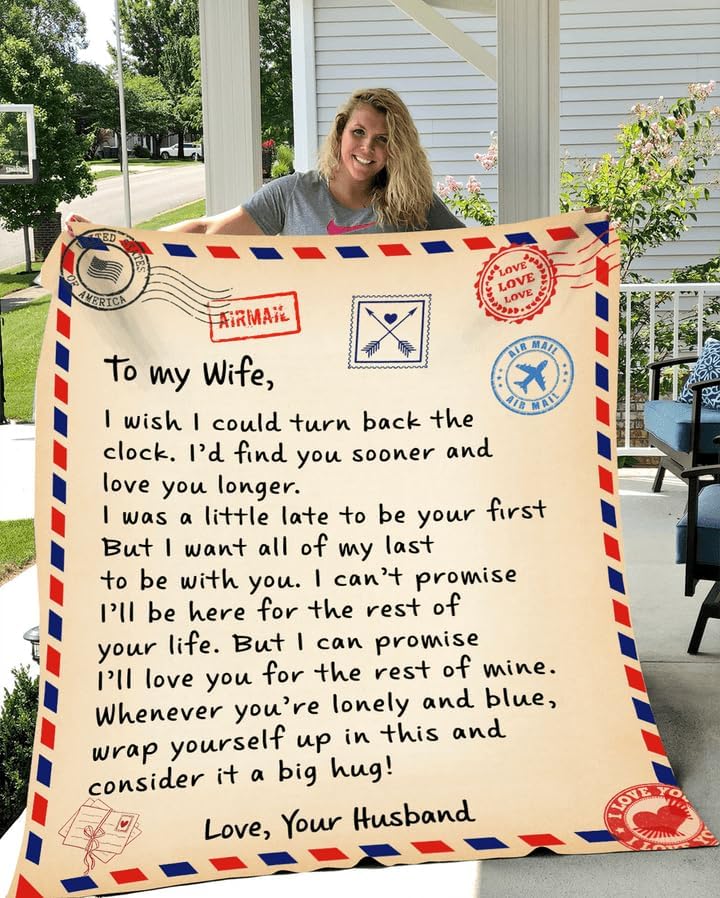 UNITED STATES
OF AMERICA
AIRMAIL
LOVE
LOVE
LOVE
AIR MAIL
AIR MAIL
To my Wife,
I wish I could turn back the
clock. I'd find you sooner and
love you longer.
I was a little late to be your first
But I want all of my last
to be with you. I can't promise
I'll be here for the rest of
your life. But I can promise
I'll love you for the rest of mine.
Whenever you're lonely and blue,
wrap yourself up in this and
consider it a big hug!
Love, Your Husband
I LOVE YOU